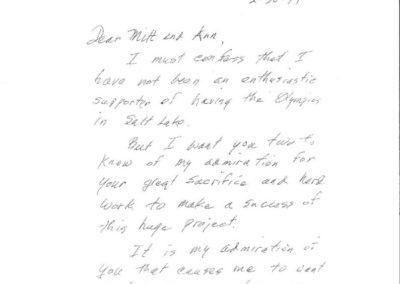 Dear Mitt and Ann,
I must confess that I
have not been an enthusiastic
supporter of having the Olympics
in Salt Lake.
But I want you two to
know of my admiration for
your great sacrifice and hard
work to make a success of
this huge project.
It is my admiration of
you that causes me to want